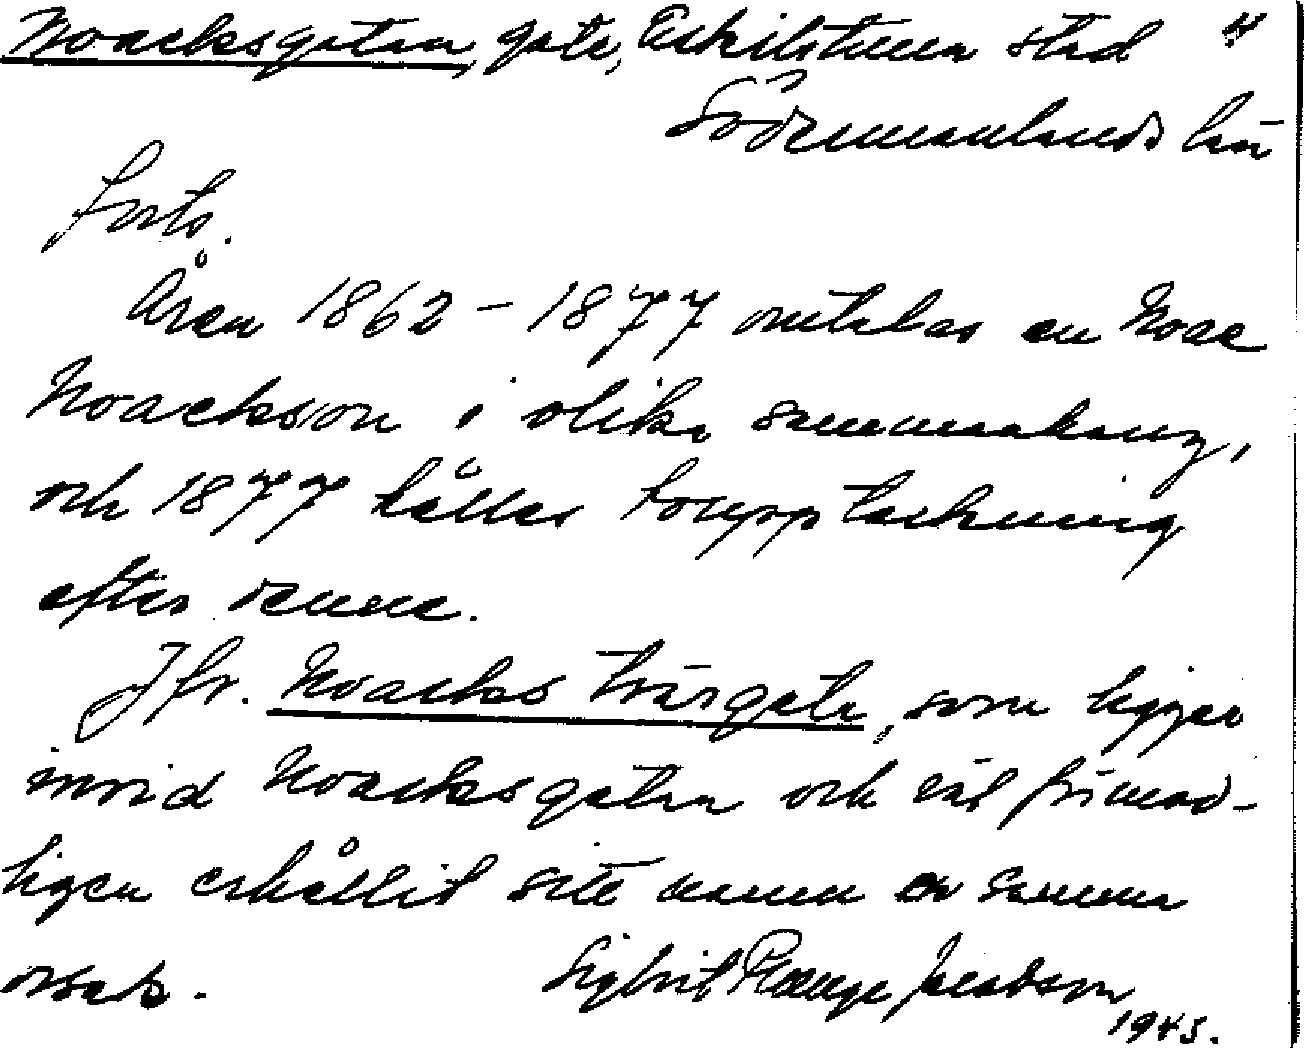 Noacksgatan, gata, Eskilstuna stad 4
Södermanlands län
forts.
Åren 1862-1877 omtalas en Noac
Noackson i olika sammanhang,
och 1877 hålles bouppteckning
efter denne.
Jfr. Noacks tvärgata, som ligger
invid Noacksgatan och väl förmod-
ligen erhållit sitt namn av samma
orsak. Sigbrit Plænge Jacobson
1945.